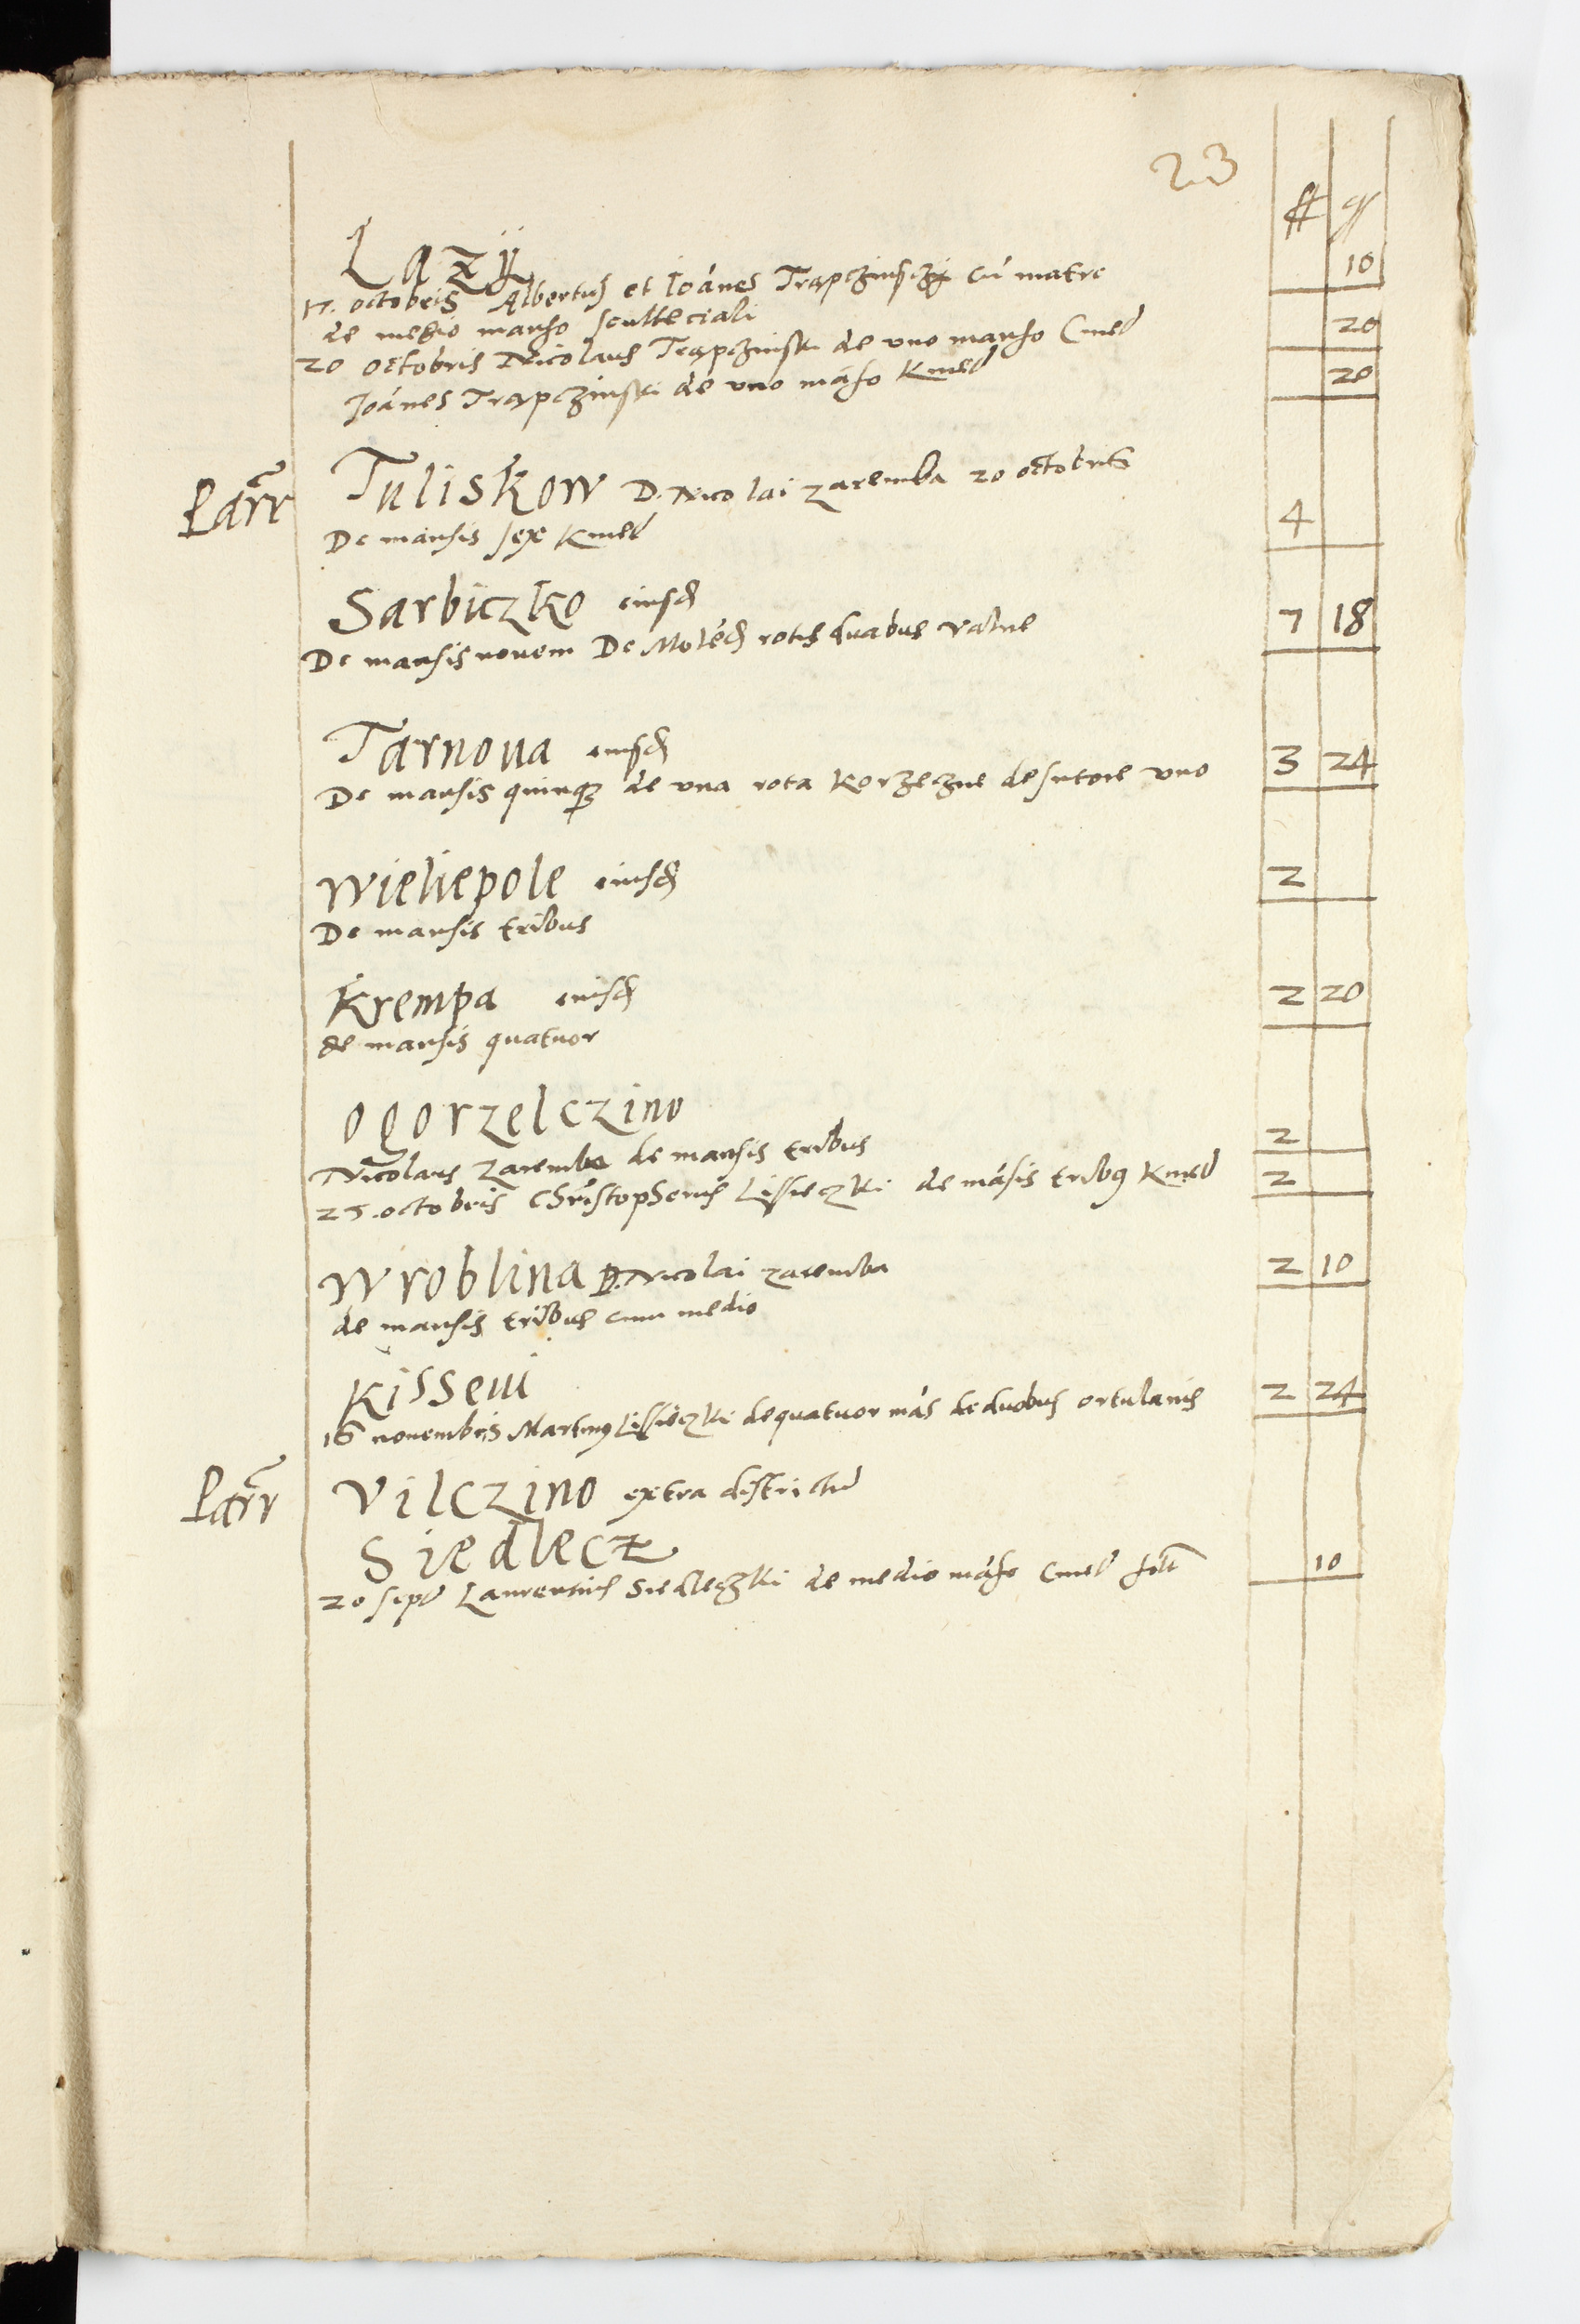 23
ff gr
Lazii
17. octobris Albertus et Ioānes Trapczinsczy cū matre 10
de medio manso sculteciali
20 octobris Nicolaus Trapczinski de uno manso Cmed 20
Ioānes Trapczinski de uno māso Kmed 20
Parr Tuliskow D. Nicolai Zaremba 20 octobris
De mansis sex Kmed 4
Sarbiczko eiusd
De mansis novem De Molēd rotis duabus valne 7 18
Tarnova eiusd
De mansis quinq de una rota Korzeczne de sutore uno 3 24
Wieliepole eiusd 2
De mansis tribus
Krempa eiusd 2 20
de mansis quatuor
Ogorzelczino
Nicolaus Zaremba de mansis tribus 2
25. octobris Christopherus Lissieczki de māsis tribus Kmed 2
Wroblina D. Nicolai Zaremba 2 10
de mansis tribus cum medio
Kissewi
16 novembris Martinus Lissieczki de quatuor mās de duobus ortulanis 2 24
Parr Vilczino extra districtū
Siedlecz
20 sept Laurentius Siedleczki de medio māso Cmed 10